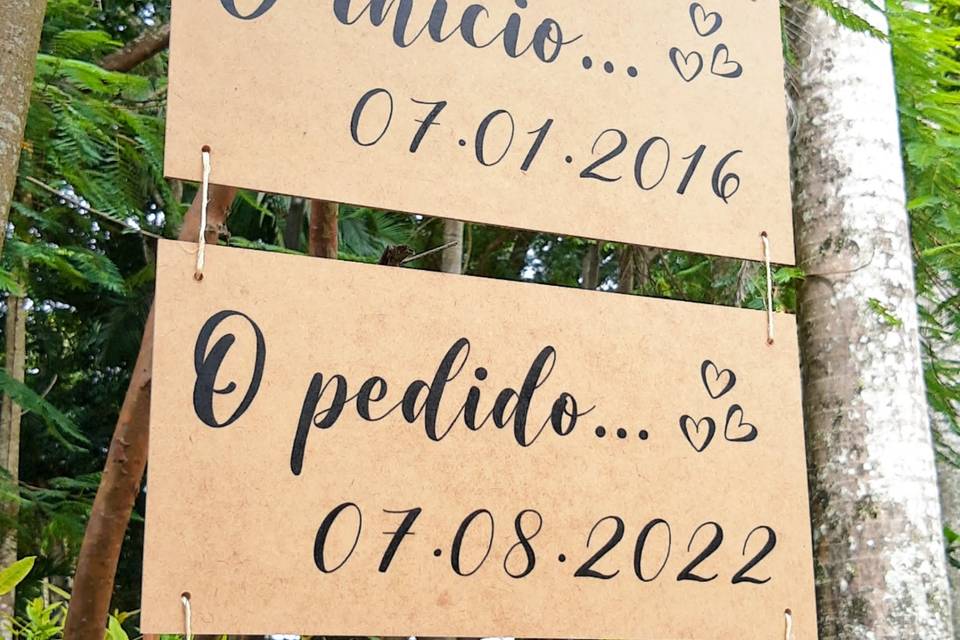 O início...
07.01.2016
O pedido...
07.08.2022